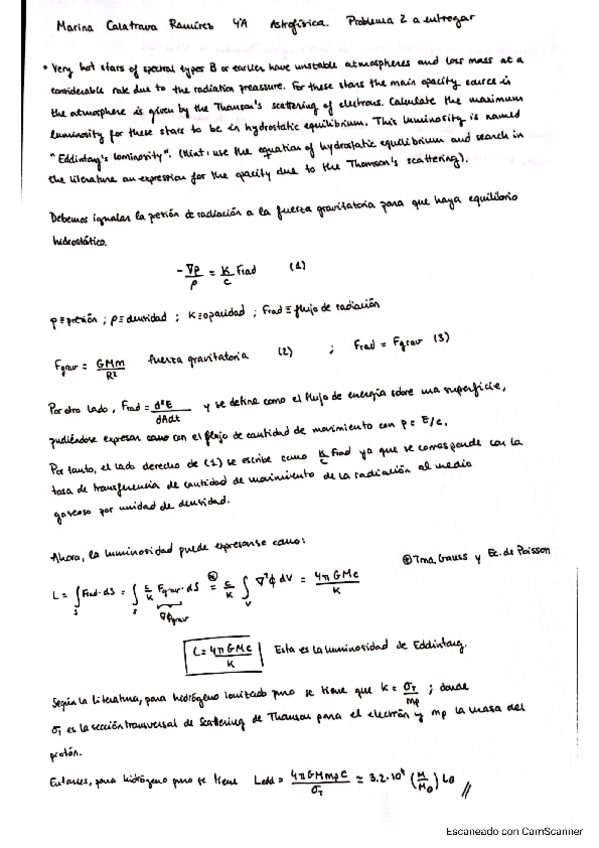 Marina Calatrava Ramírez 4ºA Astrofísica. Problema 2 a entregar
• Very hot stars of spectral types B or earlier have unstable atmospheres and loss mass at a
considerable rate due to the radiation preassure. For these stars the main opacity source in
the atmosphere is given by the Thomson's scattering of electrons. Calculate the maximum
luminosity for these stars to be in hydrostatic equilibrium. This luminosity is named
"Eddintong's lominosity". (Hint: use the equation of hydrostatic equilibrium and search in
the literature an expression for the opacity due to the Thomson's scattering).
Debemos igualar la presión de radiación a la fuerza gravitatoria para que haya equilibrio
hidrostático.
-∇p/ρ = K/c Frad (1)
p≡presión ; ρ≡densidad ; K≡opacidad ; Frad≡flujo de radiación
Fgrav = GMm/R² fuerza gravitatoria (2) ; Frad = Fgrav (3)
Por otro lado, Frad = d²E/dAdt y se define como el flujo de energía sobre una superficie,
pudiéndose expresar como con el flujo de cantidad de movimiento con p = E/c.
Por tanto, el lado derecho de (1) se escribe como K/c Frad ya que se corresponde con la
tasa de transferencia de cantidad de movimiento de la radiación al medio
gaseoso por unidad de densidad.
Ahora, la luminosidad puede expresarse como:
⊛ Tma Gauss y Ec. de Poisson
L = ∫s Frad·dS = ∫s c/K Fgrav·dS =⊛ c/K ∫v ∇²ϕ dV = 4πGMc/K
L = 4πGMc/K Esta es la luminosidad de Eddintong.
Según la literatura, para hidrógeno ionizado puro se tiene que K = σT/mp ; donde
σT es la sección transversal de Scattering de Thomson para el electrón y mp la masa del
protón.
Entonces, para hidrógeno puro se tiene Ledd = 4πGMmpc/σT ≃ 3.2·10⁴ (M/M⊙) L⊙ //
Escaneado con CamScanner